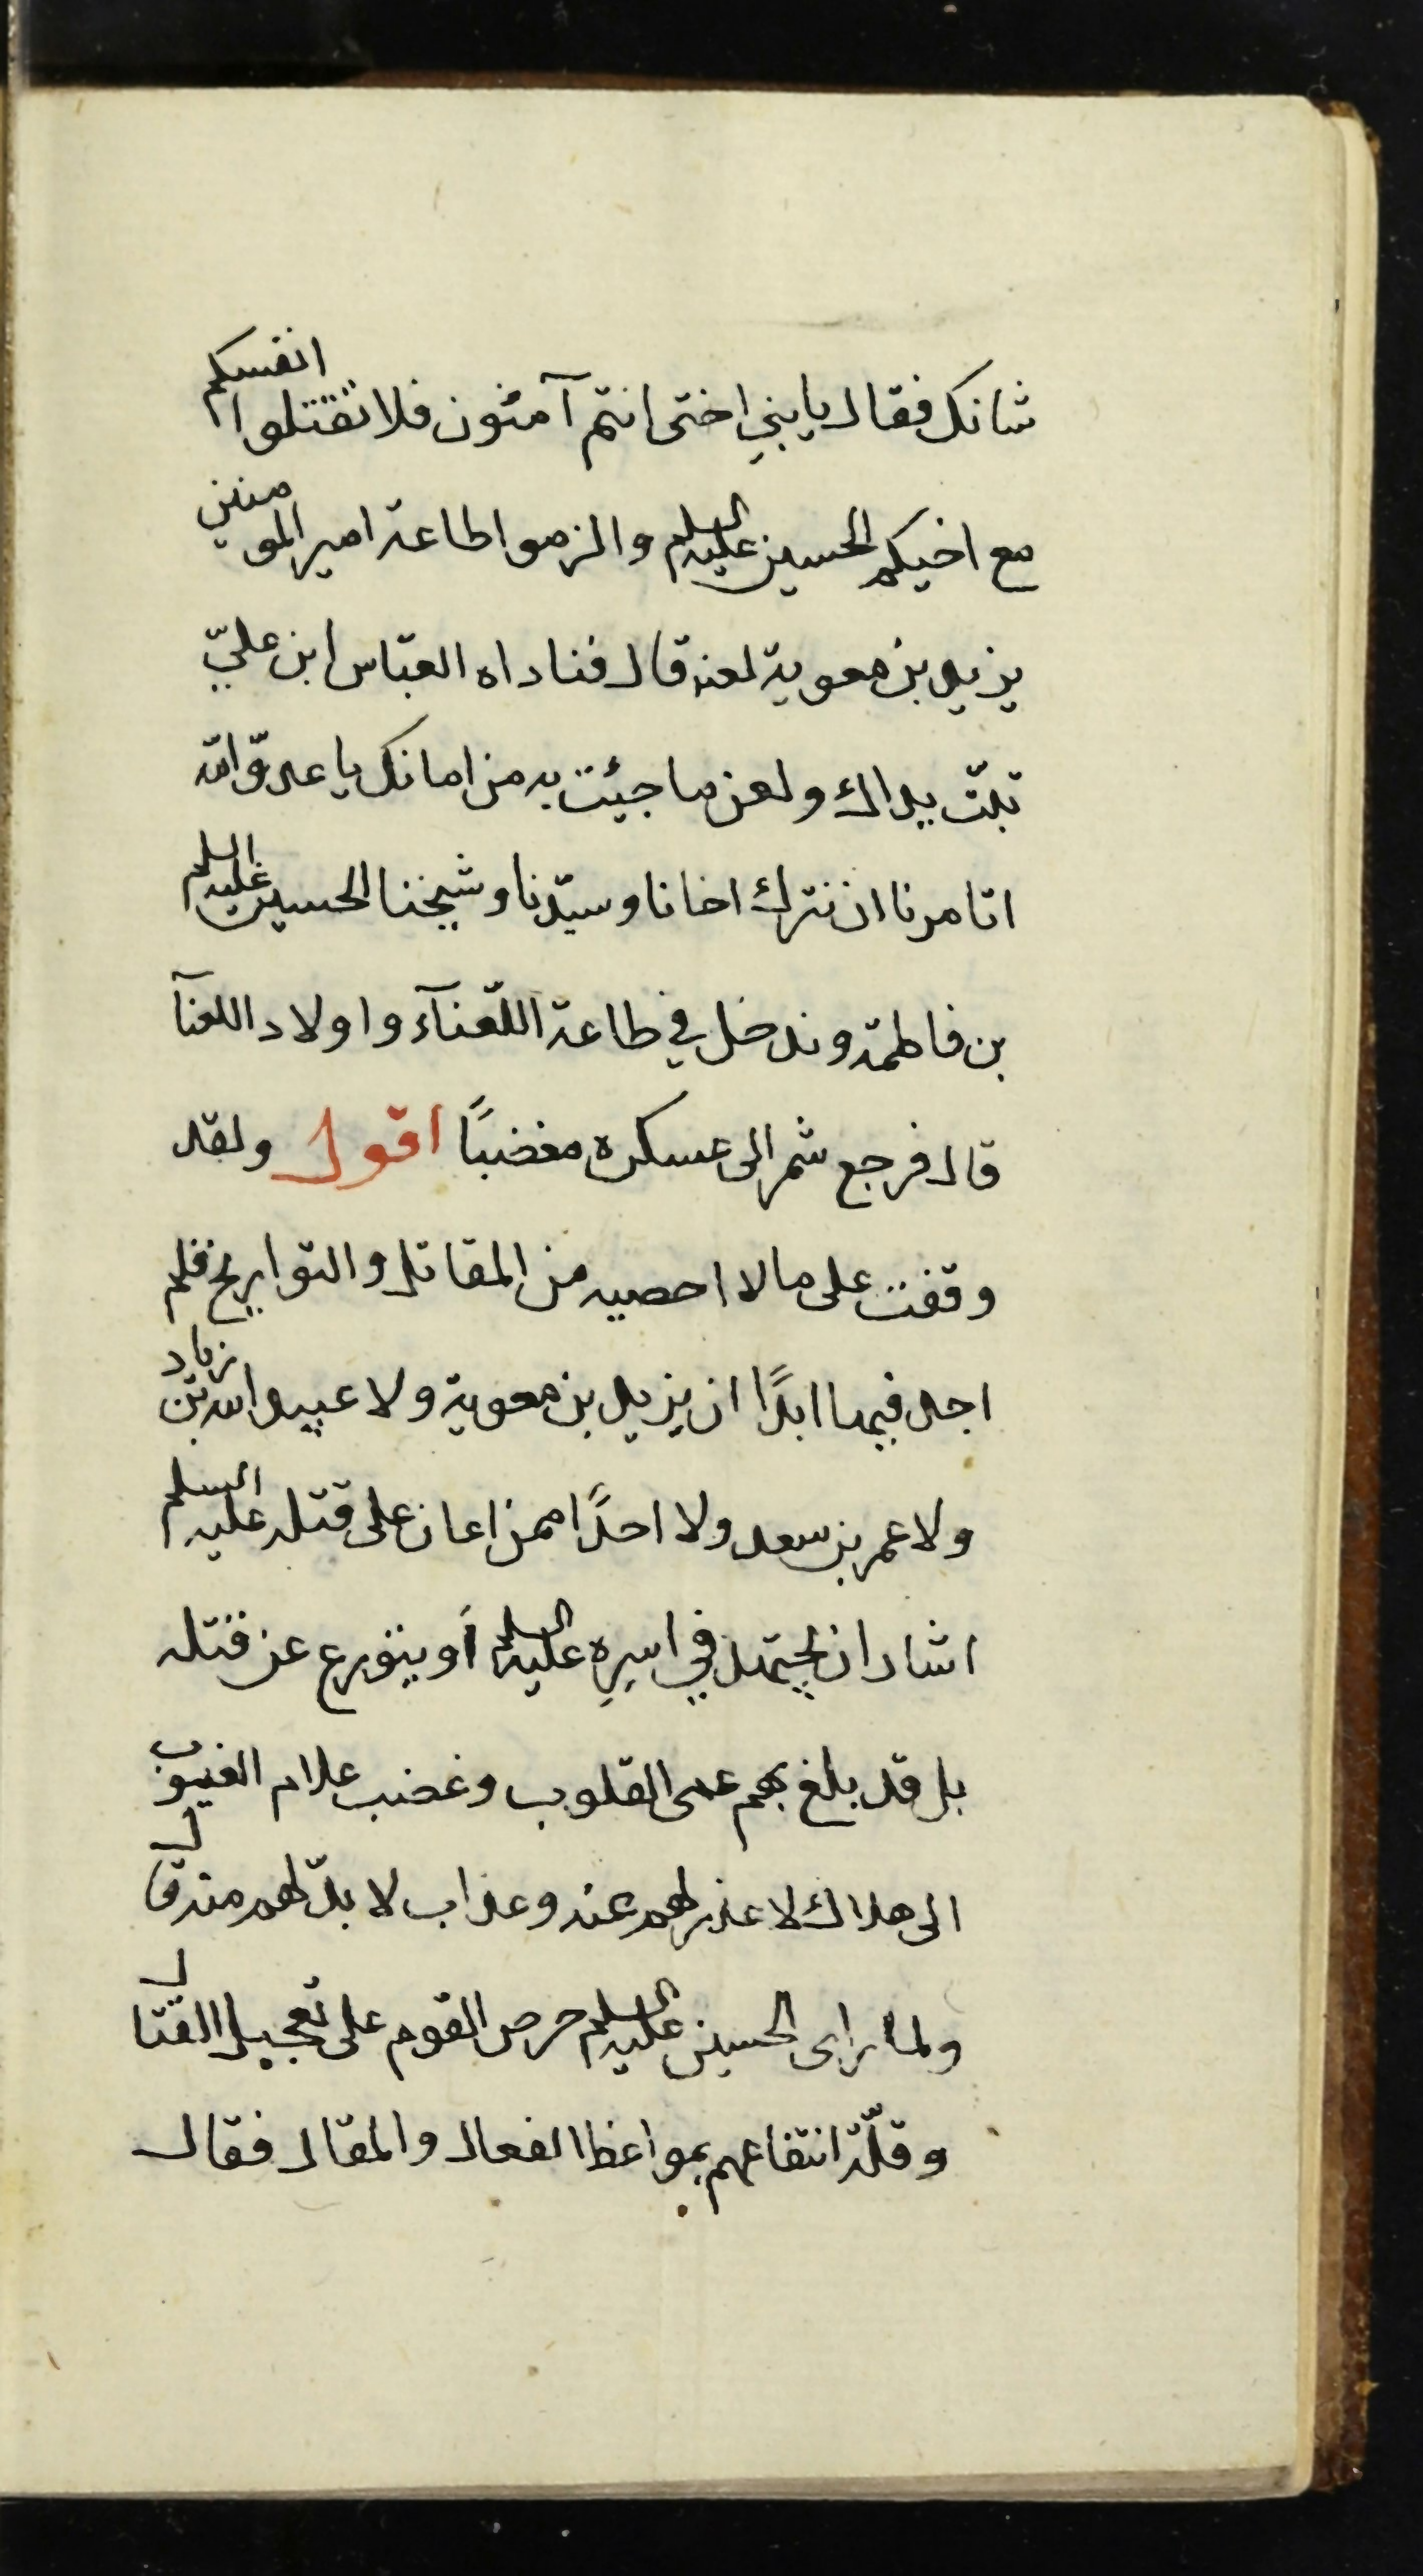 شانك فقال يا بني اختى انتم آمنون فلا تقتلوا انفسكم
مع اخيكم الحسين عليه السلم والزموا طاعة امير المومنين
يزيد بن معوية لعنه قال فناداه العبّاس ابن عليّ
تبّت يداك ولعن ما جيئت به من امانك يا عدوّ الله
اتامرنا ان نترك اخانا وسيّدنا وشيخنا الحسين عليه السلم
بن فاطمة وندخل في طاعة اللّعنآء واولاد اللعنآ
قال فرجع شمر الى عسكره مغضبًا اقول ولقد
وقفت على ما لا احصيه من المقاتل والتواريخ فلم
اجد فيها ابدًا ان يزيد بن معوية ولا عبيد الله بن زياد
ولا عمر بن سعد ولا احدًا ممن اعان على قتله عليه السلم
اشار ان يحتمل في اسرِه عليه السلم أو يتورع عن قتله
بل قد بلغ بهم عمى القلوب وغضب علام الغيوب
الى هلاك لا عذر لهم عنه وعذاب لا بدّ لهم منه قال
ولما راى الحسين عليه السلم حرص القوم على تعجيل القتال
وقلّة انتفاعهم بمواعظ الفعال والمقال فقال